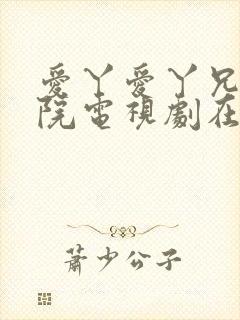 愛丫愛丫兄
院電視劇在
蕭少公子